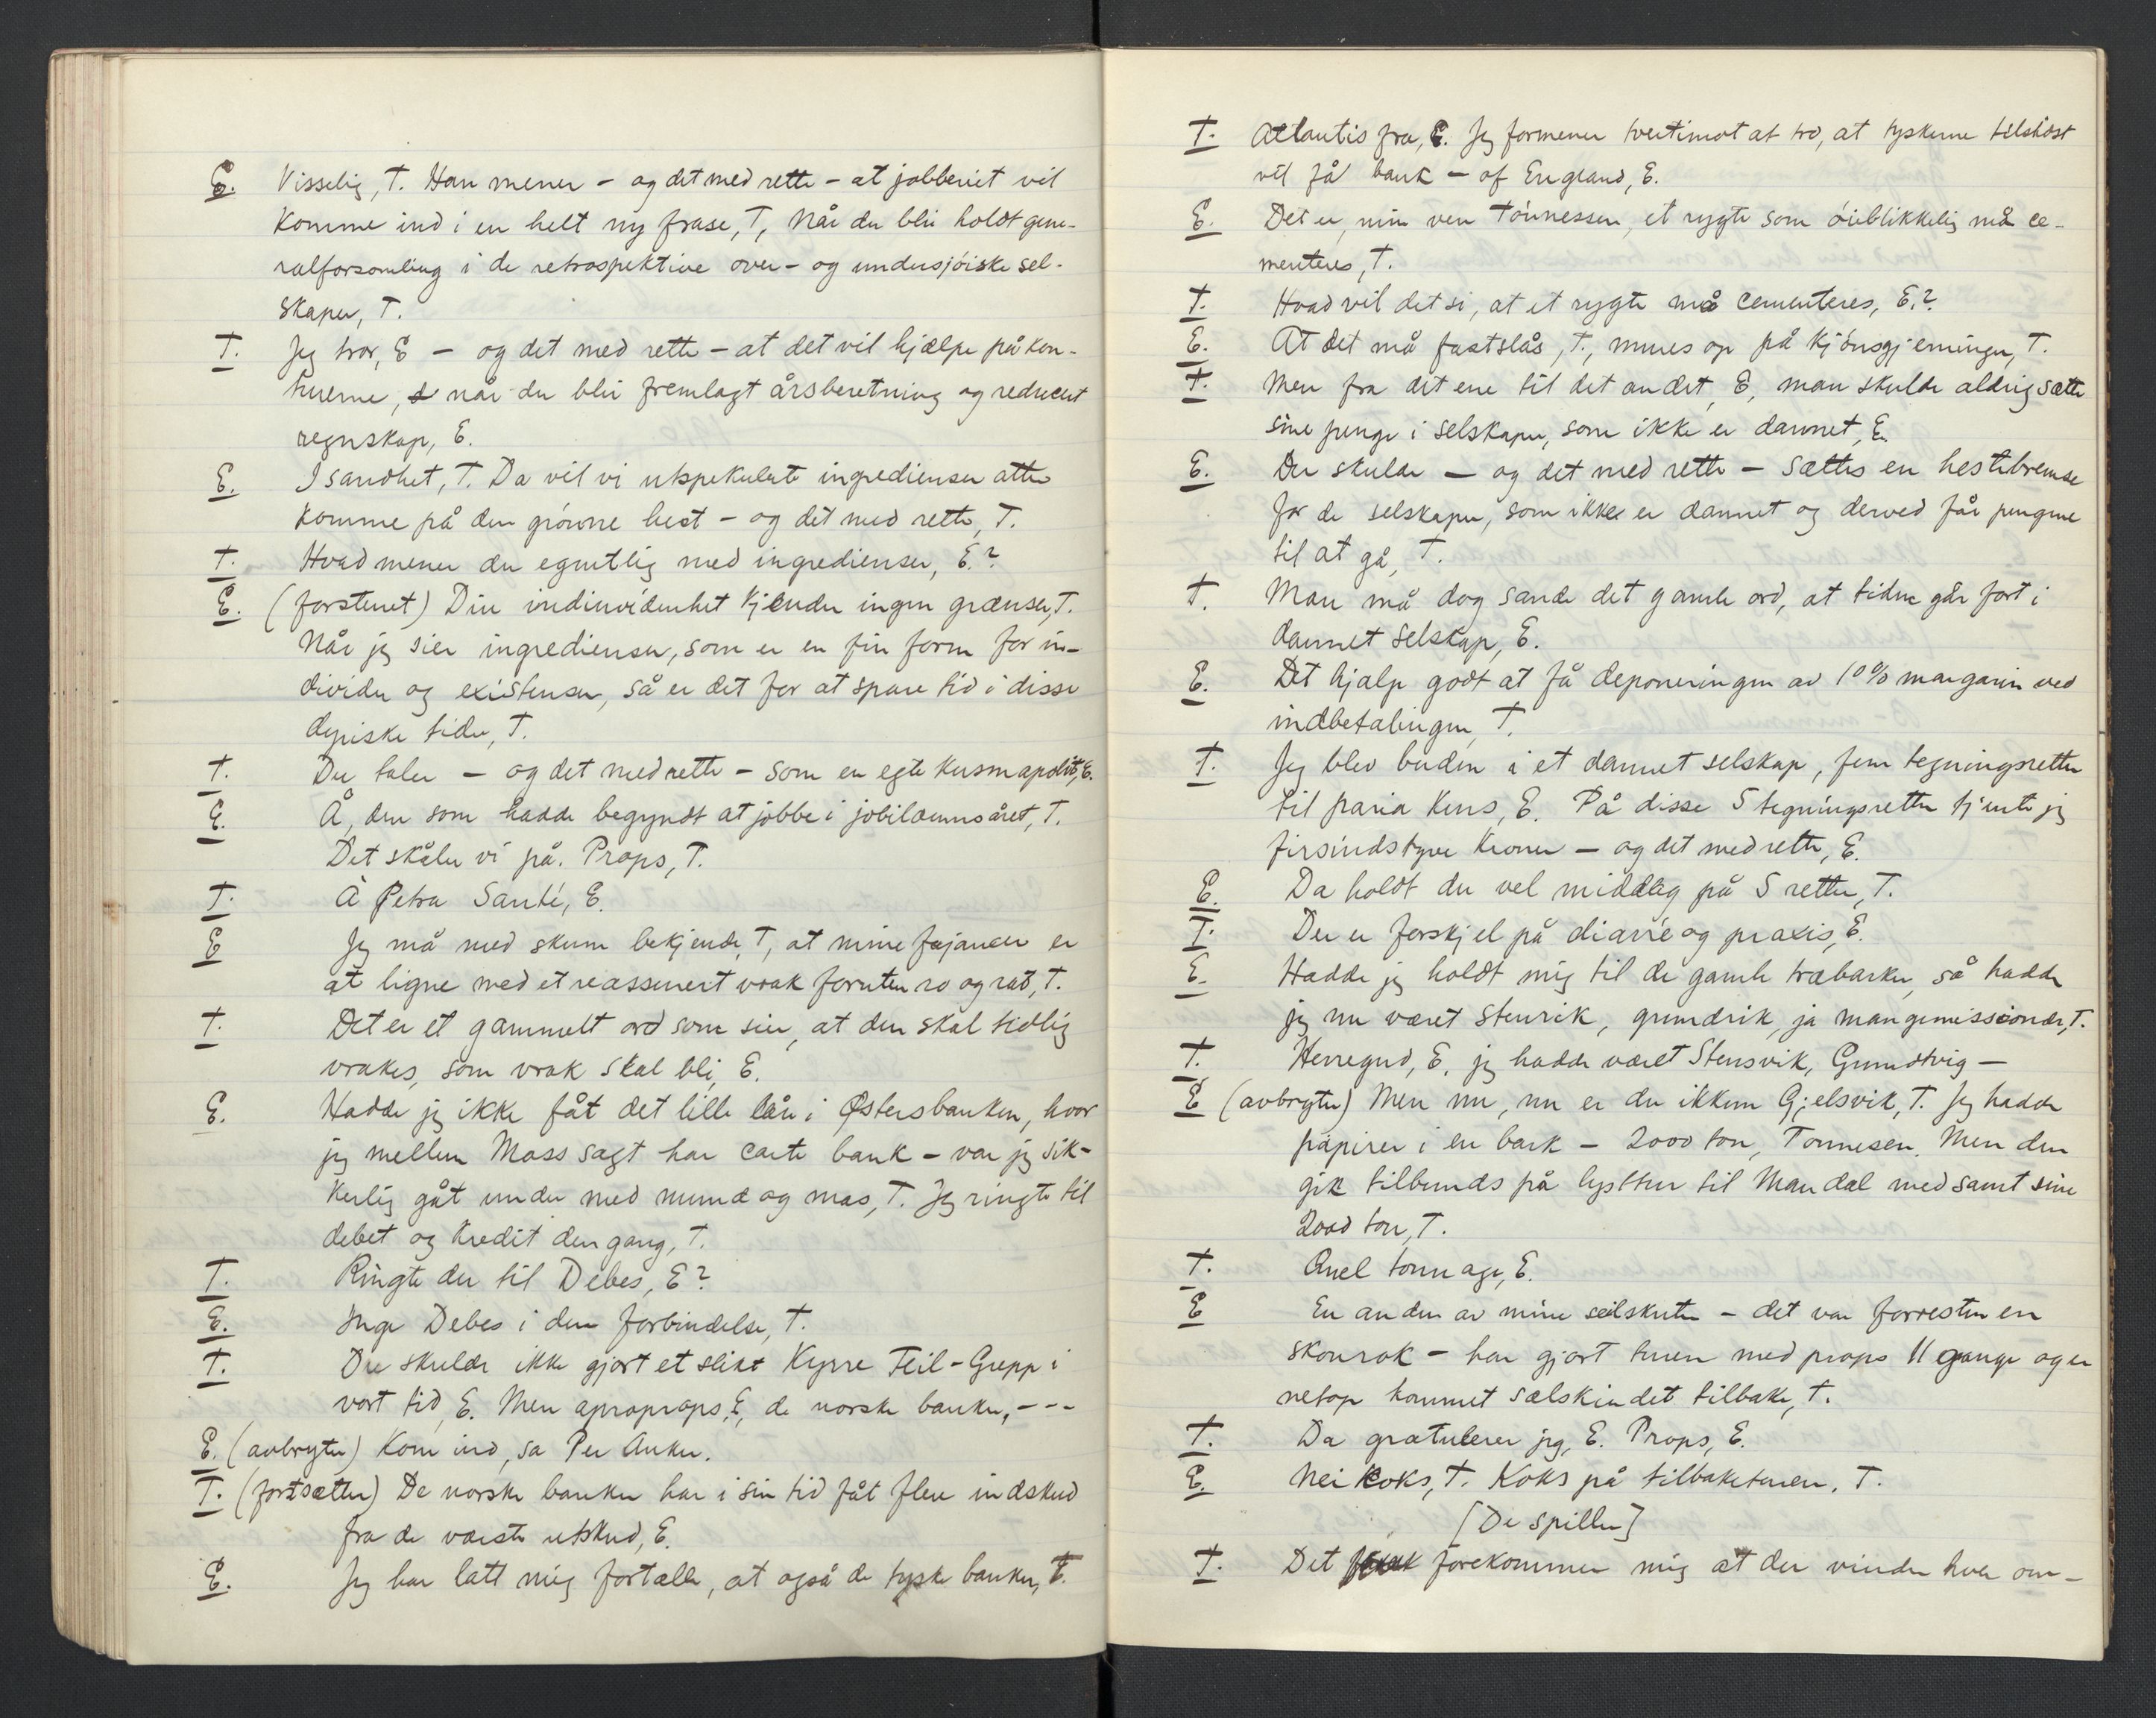 E. Visselig, T. Han mener – og det med rette – at jobberiet vil
komme ind i en helt ny frase, T, når der blir holdt gene-
ralforsamling i de retrospektive over- og undersjøiske sel-
skaper, T.
T. Jeg tror, E – og det med rette – at det vil hjælpe på kon-
turerne, når der blir fremlagt årsberetning og reducert
regnskap, E.
E. I sandhet, T. Da vil vi utspekulerte ingredienser atter
komme på den grønne hest – og det med rette, T.
T. Hvad mener du egentlig med ingredienser, E.?
E. (forstenet) Din individenhet kjender ingen grænser, T.
Når jeg sier ingredienser, som er en fin form for in-
divider og existenser, så er det for at spare tid i disse
dyriske tider, T.
T. Du taler – og det med rette – som en egte kusmapolit, E.
E. Å, den som hadde begyndt at jobbe i jobilæumsåret, T.
Det skåler vi på. Props, T.
T. À Petra Santé, E.
E Jeg må med skum bekjende, T, at mine fajancer er
at ligne med et reassurert vrak foruten ro og rat, T.
T. Det er et gammelt ord som sier, at den skal tidlig
vrakes, som vrak skal bli, E.
E. Hadde jeg ikke fåt det lille lån i Østersbanken, hvor
jeg mellem Moss sagt har carte bank – var jeg sik-
kerlig gåt under med mund og mas, T. Jeg ringte til
debet og kredit den gang, T.
T. Ringte du til Debes, E?
E. Inge Debes i den forbindelse, T.
T. Du skulde ikke gjort et slikt Kyrre Feil-Grepp i
vort tid, E. Men apropops, E, de norske banker, - - -
E. (avbryter) Kom ind, sa Per Anker.
T. (fortsætter) De norske banker har i sin tid fåt flere indskud
fra de værste utskud, E.
E. Jeg har latt mig fortælle, at også de tyske banker, T.
T. Atlantis fra, E. Jeg formener tvertimot at tro, at tyskerne tilsidst
vil få bank – of England, E.
E. Det er, min ven Tønnessen, et rygte som øieblikkelig må ce-
menteres, T.
T. Hvad vil det si, at et rygte må cementeres, E.?
E. At det må fastslås, T., mures op på kjønsgjerninger, T.
T. Men fra det ene til det andet, E, man skulde aldrig sætte
sine penge i selskaper, som ikke er dannet, E.
E. Der skulde – og det med rette – sættes en hestebremse
for de selskaper, som ikke er dannet og derved får pengene
til at gå, T.
T. Man må dog sande det gamle ord, at tiden går fort i
dannet selskap, E.
E. Det hjalp godt at få deponeringen av 10% margarin ved
indbetalingen, T.
T. Jeg blev buden i et dannet selskap, fem tegningsretter
til paria kurs, E. På disse 5 tegningsretter tjente jeg
firsindstyve kroner – og det med rette, E.
E. Da holdt du vel middag på 5 retter, T.
T. Der er forskjel på diarré og praxis, E.
E. Hadde jeg holdt mig til de gamle træbarker, så hadde
jeg nu været stenrik, grundrik, ja mangemissionær, T.
T. Herregud, E, jeg hadde været Stensvik, Grundtvig –
E (avbryter) Men nu, nu er du ikkun Gjelsvik, T. Jeg hadde
papirer i en bark – 2000 ton, Tønnesen. Men den
gik tilbunds på lysttur til Mandal med samt sine
2000 ton, T.
T. Quel tonnage, E.
E En anden av mine seilskuter – det var forresten en
skonrok – har gjort turen med props 11 gange og er
netop kommet sælskindet tilbake, T.
T. Da gratulerer jeg, E. Props, E.
E. Nei koks, T. Koks på tilbaketuren, T.
[De spiller]
T. Det forekommer mig at du vinder hver om-